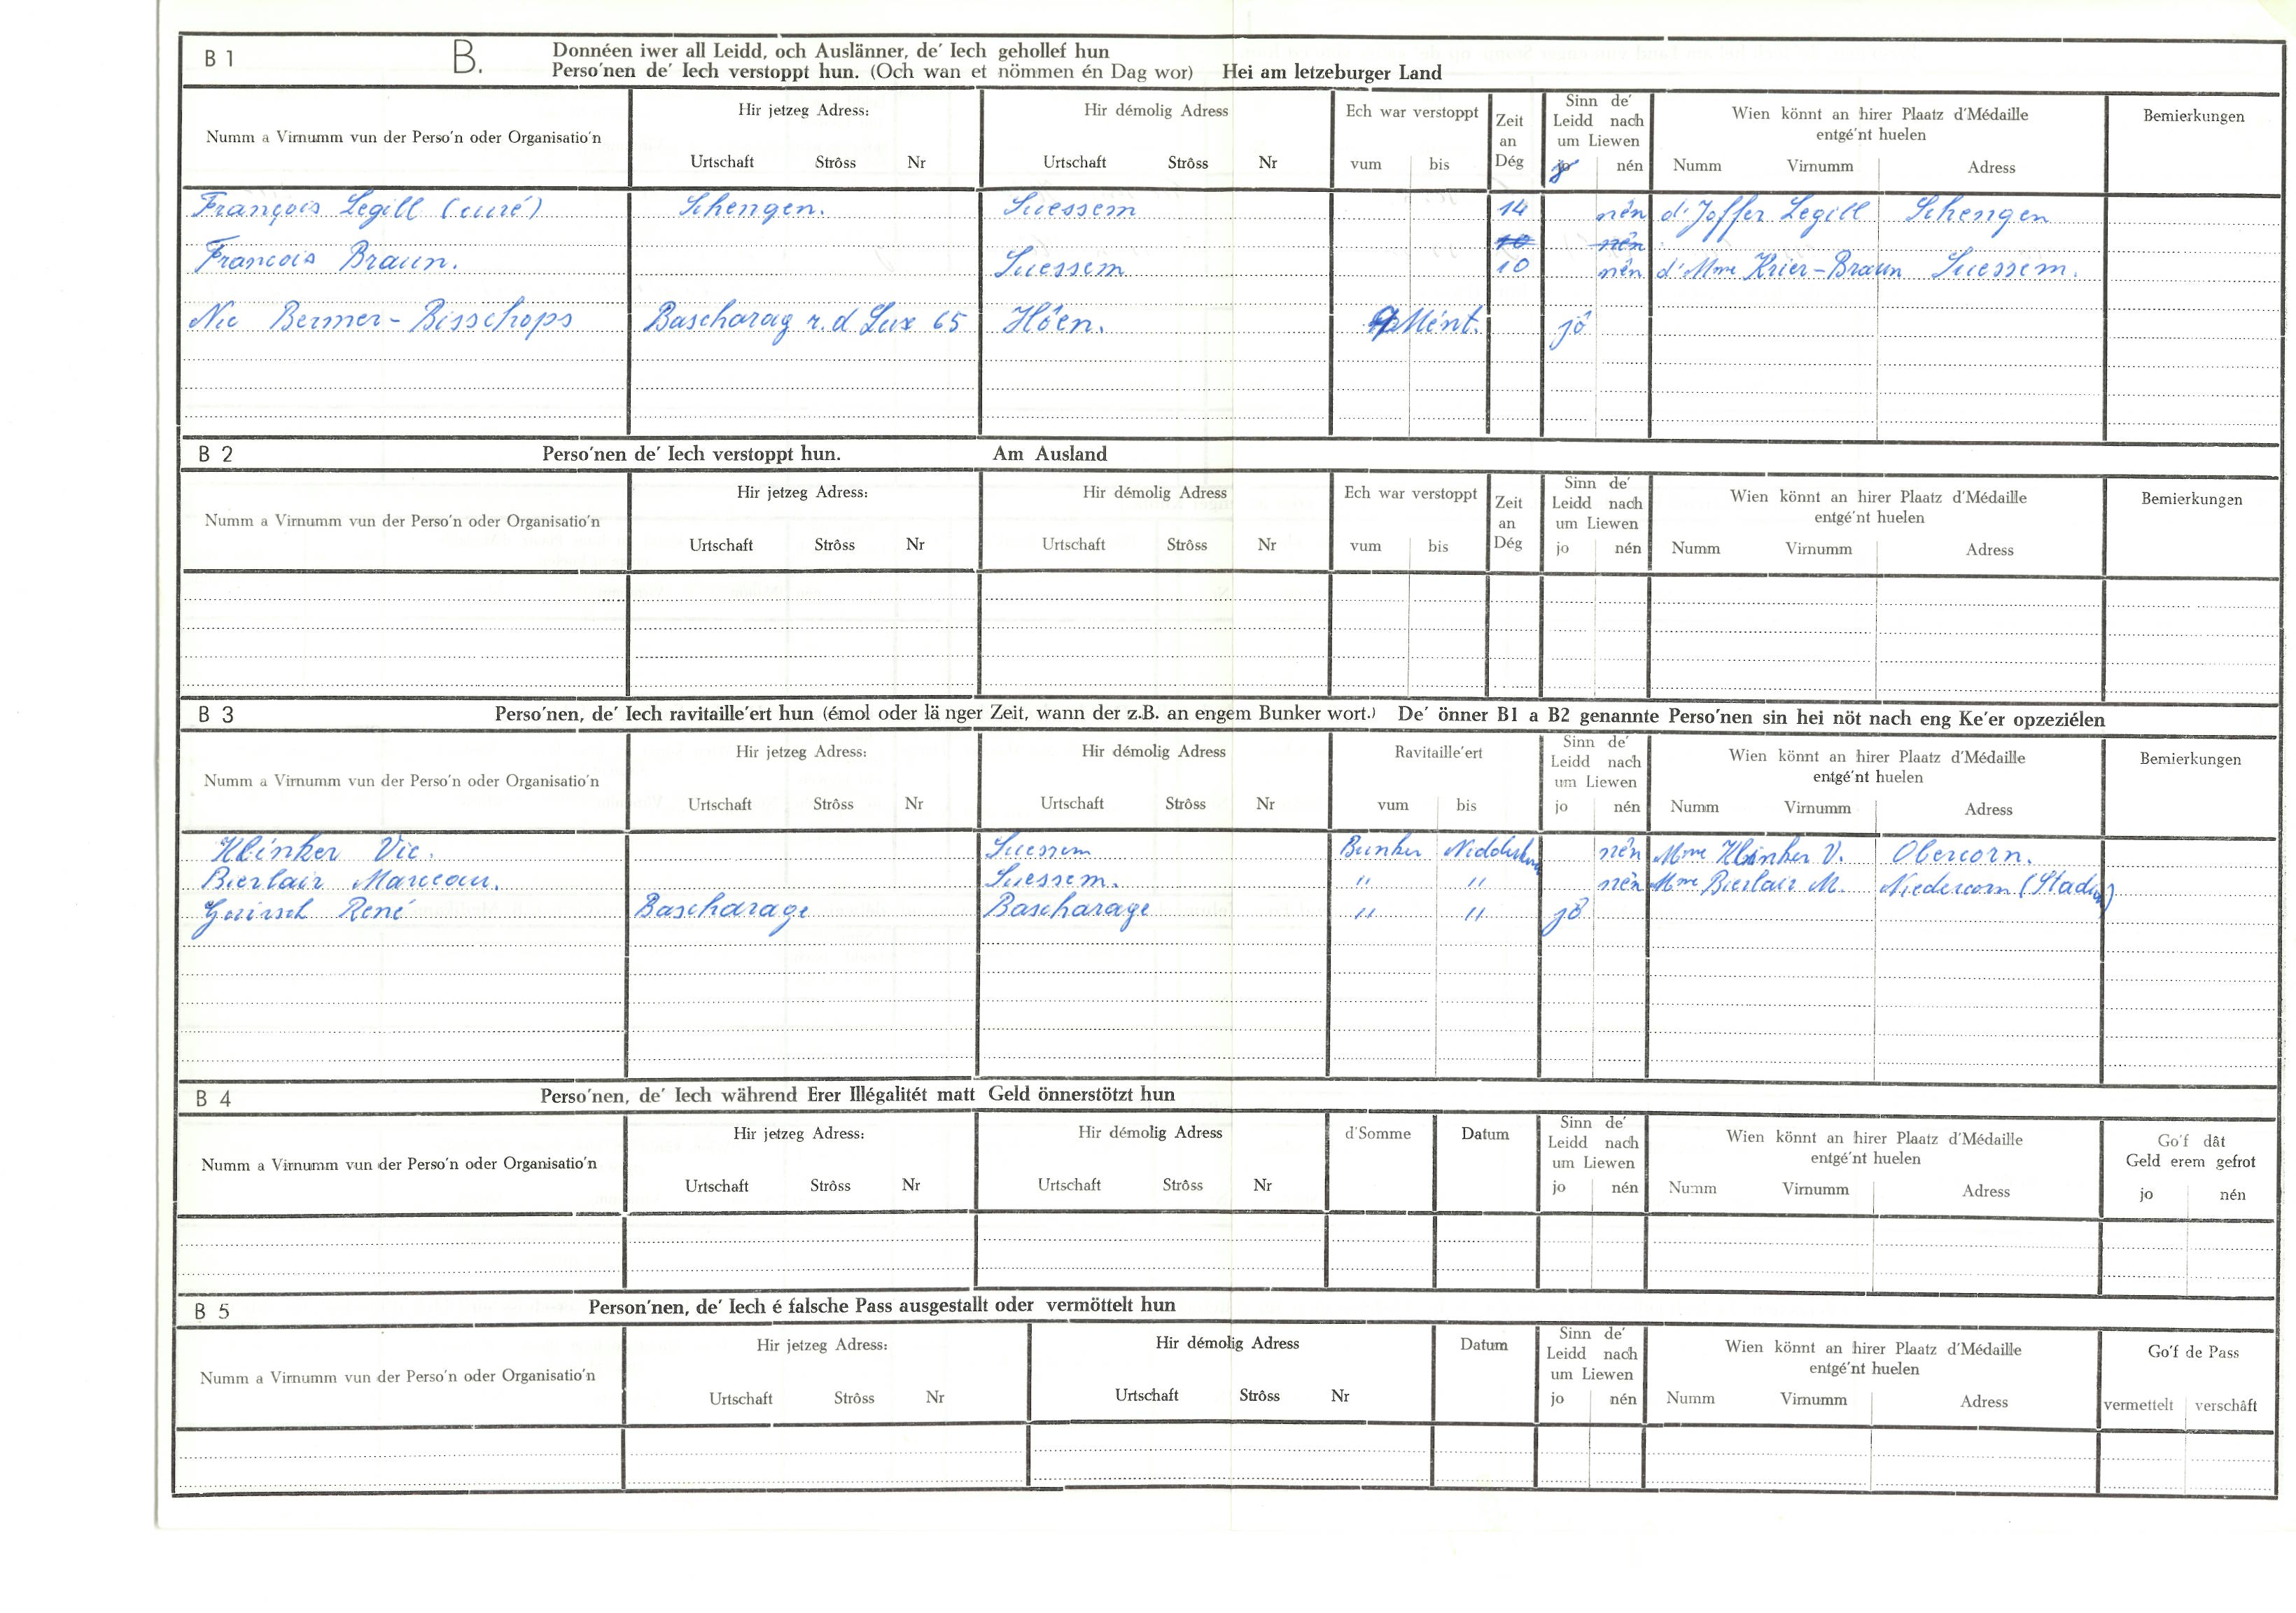 B 1 B. Donnéen iwer all Leidd, och Auslänner, de' Iech gehollef hun
Perso'nen de' Iech verstoppt hun. (Och wan et nömmen én Dag wor) Hei am letzeburger Land
Numm a Virnumm vun der Perso'n oder Organisatio'n
Hir jetzeg Adress:
Urtschaft Strôss Nr
Hir démolig Adress
Urtschaft Strôss Nr
Ech war verstoppt
vum bis
Zeit
an
Dég
Sinn de'
Leidd nach
um Liewen
jo nén
Wien könnt an hirer Plaatz d'Médaille
entgé'nt huelen
Numm Virnumm Adress
Bemierkungen
François Legill (curé) Schengen. Suessem 14 nén d'Joffer Legill Schengen
10 nén
Francois Braun. Suessem 10 nén d'Mme Krier-Braun Suessem.
Nic Bermer-Bisschops Bascharag r. d Lux 65 Hôen. Mént. jô
B 2 Perso'nen de' Iech verstoppt hun. Am Ausland
Numm a Virnumm vun der Perso'n oder Organisatio'n
Hir jetzeg Adress:
Urtschaft Strôss Nr
Hir démolig Adress
Urtschaft Strôss Nr
Ech war verstoppt
vum bis
Zeit
an
Dég
Sinn de'
Leidd nach
um Liewen
jo nén
Wien könnt an hirer Plaatz d'Médaille
entgé'nt huelen
Numm Virnumm Adress
Bemierkungen
B 3 Perso'nen, de' Iech ravitaille'ert hun (émol oder länger Zeit, wann der z.B. an engem Bunker wort.) De' önner B1 a B2 genannte Perso'nen sin hei nöt nach eng Ke'er opzeziélen
Numm a Virnumm vun der Perso'n oder Organisatio'n
Hir jetzeg Adress:
Urtschaft Strôss Nr
Hir démolig Adress
Urtschaft Strôss Nr
Ravitaille'ert
vum bis
Sinn de'
Leidd nach
um Liewen
jo nén
Wien könnt an hirer Plaatz d'Médaille
entgé'nt huelen
Numm Virnumm Adress
Bemierkungen
Klinker Vic. Suessem Bunker nén Mme Klinker V. Obercorn.
Bierlair Marceau. Suessem. " " nén Mme Bierlair M. Niedercorn
René Bascharage Bascharage " " jô
B 4 Perso'nen, de' Iech während Erer Illégalitét matt Geld önnerstötzt hun
Numm a Virnumm vun der Perso'n oder Organisatio'n
Hir jetzeg Adress:
Urtschaft Strôss Nr
Hir démolig Adress
Urtschaft Strôss Nr
d'Somme
Datum
Sinn de'
Leidd nach
um Liewen
jo nén
Wien könnt an hirer Plaatz d'Médaille
entgé'nt huelen
Numm Virnumm Adress
Go'f dât
Geld erem gefrot
jo nén
B 5 Person'nen, de' Iech é falsche Pass ausgestallt oder vermöttelt hun
Numm a Virnumm vun der Perso'n oder Organisatio'n
Hir jetzeg Adress:
Urtschaft Strôss Nr
Hir démolig Adress
Urtschaft Strôss Nr
Datum
Sinn de'
Leidd nach
um Liewen
jo nén
Wien könnt an hirer Plaatz d'Médaille
entgé'nt huelen
Numm Virnumm Adress
Go'f de Pass
vermettelt verschâft